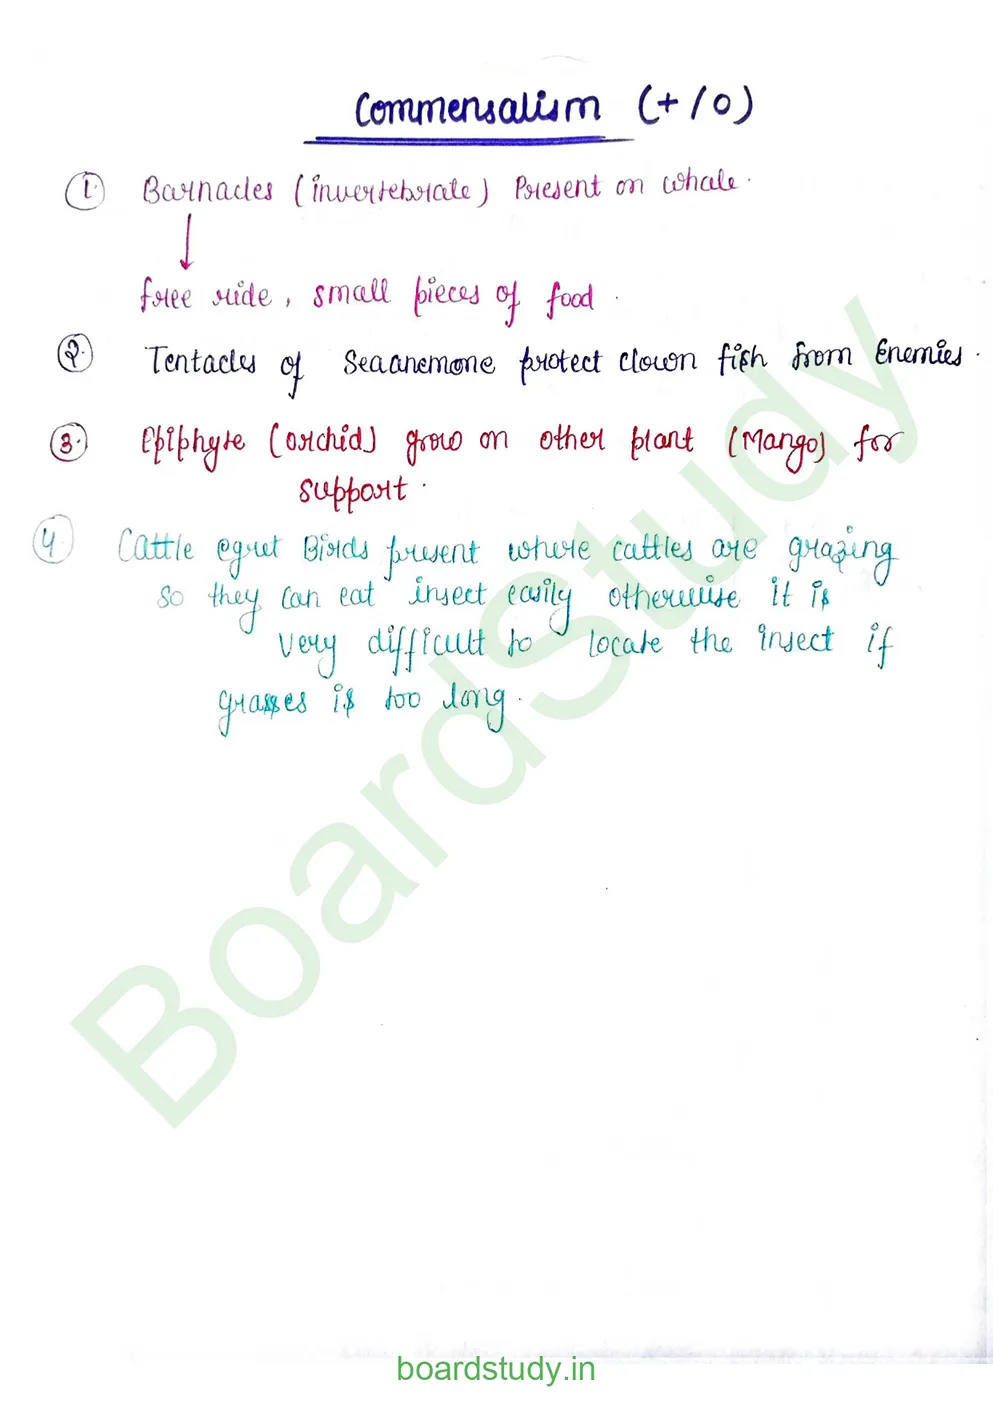 Commensalism (+/0)
1. Barnacles (invertebrate) Present on whale.
free ride, small pieces of food.
2. Tentacles of Seaanemone protect clown fish from Enemies.
3. Epiphyte (orchid) grow on other plant (Mango) for
support.
4 Cattle egret Birds present where cattles are grazing
so they can eat insect easily otherwise it is
very difficult to locate the insect if
grasses is too long.
BoardStudy
boardstudy.in